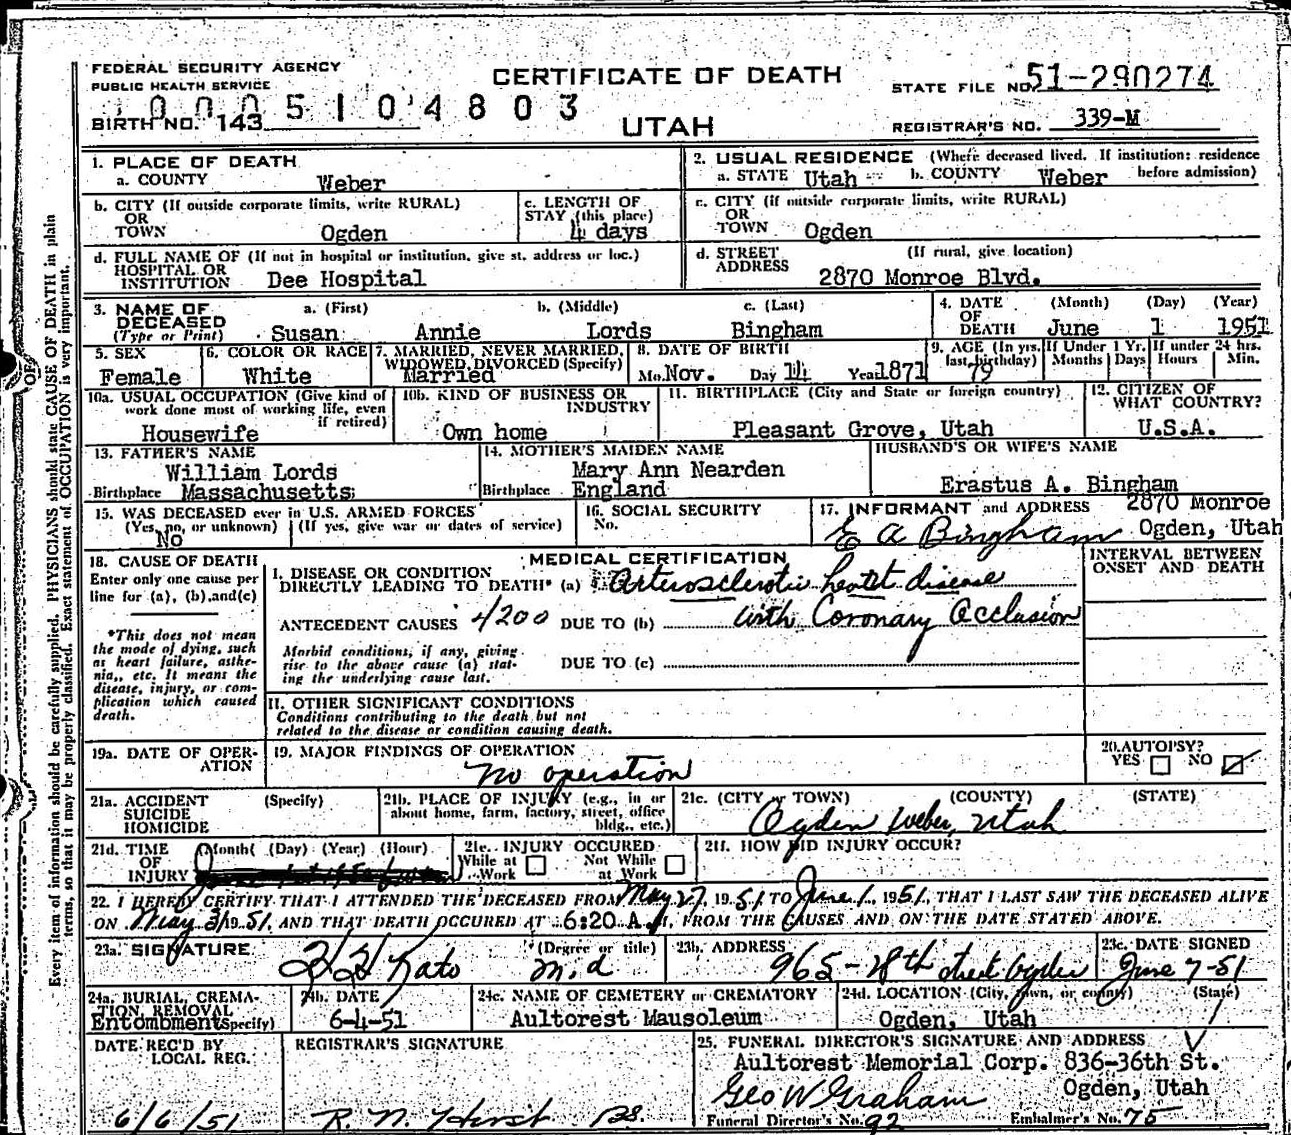 FEDERAL SECURITY AGENCY
PUBLIC HEALTH SERVICE
CERTIFICATE OF DEATH
STATE FILE NO. 51-290274
0005104803
BIRTH NO. 143
UTAH
REGISTRAR'S NO. 339-M
1. PLACE OF DEATH
a. COUNTY Weber
2. USUAL RESIDENCE (Where deceased lived. If institution: residence before admission)
a. STATE Utah b. COUNTY Weber
b. CITY (If outside corporate limits, write RURAL)
OR
TOWN Ogden
c. LENGTH OF
STAY (this place)
4 days
c. CITY (if outside corporate limits, write RURAL)
OR
TOWN Ogden
d. FULL NAME OF (If not in hospital or institution, give st. address or loc.)
HOSPITAL OR
INSTITUTION Dee Hospital
d. STREET (If rural, give location)
ADDRESS 2870 Monroe Blvd.
3. NAME OF DECEASED
(Type or Print)
a. (First) b. (Middle) c. (Last)
Susan Annie Lords Bingham
4. DATE OF DEATH (Month) (Day) (Year)
June 1 1951
5. SEX
Female
6. COLOR OR RACE
White
7. MARRIED, NEVER MARRIED,
WIDOWED, DIVORCED (Specify)
Married
8. DATE OF BIRTH
Mo. Nov. Day 14 Year 1871
9. AGE (In yrs. last birthday) If Under 1 Yr. If under 24 hrs.
Months Days Hours Min.
79
10a. USUAL OCCUPATION (Give kind of
work done most of working life, even
if retired)
Housewife
10b. KIND OF BUSINESS OR
INDUSTRY
Own home
11. BIRTHPLACE (City and State or foreign country)
Pleasant Grove, Utah
12. CITIZEN OF
WHAT COUNTRY?
U.S.A.
13. FATHER'S NAME
William Lords
Birthplace Massachusetts
14. MOTHER'S MAIDEN NAME
Mary Ann Nearden
Birthplace England
HUSBAND'S OR WIFE'S NAME
Erastus A. Bingham
15. WAS DECEASED ever in U.S. ARMED FORCES
(Yes, no, or unknown) (If yes, give war or dates of service)
No
16. SOCIAL SECURITY
No.
17. INFORMANT and ADDRESS 2870 Monroe
E A Bingham Ogden, Utah
18. CAUSE OF DEATH
Enter only one cause per
line for (a), (b), and (c)
*This does not mean
the mode of dying, such
as heart failure, asthe-
nia, etc. It means the
disease, injury, or com-
plication which caused
death.
MEDICAL CERTIFICATION
INTERVAL BETWEEN
ONSET AND DEATH
I. DISEASE OR CONDITION
DIRECTLY LEADING TO DEATH* (a) Arterosclerotic heart disease
ANTECEDENT CAUSES 4200 DUE TO (b) with Coronary Occlusion
Morbid conditions, if any, giving
rise to the above cause (a) stat-
ing the underlying cause last.
DUE TO (c)
II. OTHER SIGNIFICANT CONDITIONS
Conditions contributing to the death but not
related to the disease or condition causing death.
19a. DATE OF OPER-
ATION
19. MAJOR FINDINGS OF OPERATION
No operation
20. AUTOPSY?
YES NO
21a. ACCIDENT (Specify)
SUICIDE
HOMICIDE
21b. PLACE OF INJURY (e.g., in or
about home, farm, factory, street, office
bldg., etc.)
21c. (CITY or TOWN) (COUNTY) (STATE)
Ogden Weber, Utah
21d. TIME (Month) (Day) (Year) (Hour)
OF
INJURY
21e. INJURY OCCURED
While at Work Not While at Work
21f. HOW DID INJURY OCCUR?
22. I HEREBY CERTIFY THAT I ATTENDED THE DECEASED FROM May 27, 1951 TO June 1, 1951, THAT I LAST SAW THE DECEASED ALIVE
ON May 31 1951, AND THAT DEATH OCCURED AT 6:20 A.M, FROM THE CAUSES AND ON THE DATE STATED ABOVE.
23a. SIGNATURE (Degree or title)
Kato M.d
23b. ADDRESS
965-28th street Ogden
23c. DATE SIGNED
June 7-51
24a. BURIAL, CREMA-
TION, REMOVAL
Entombment (Specify)
24b. DATE
6-4-51
24c. NAME OF CEMETERY or CREMATORY
Aultorest Mausoleum
24d. LOCATION (City, town, or county) (State)
Ogden, Utah
DATE REC'D BY
LOCAL REG.
6/6/51
REGISTRAR'S SIGNATURE
R. N. Hirst
25. FUNERAL DIRECTOR'S SIGNATURE AND ADDRESS
Aultorest Memorial Corp. 836-36th St.
Geo W Graham Ogden, Utah
Funeral Director's No. 92 Embalmer's No. 75
Every item of information should be carefully supplied. PHYSICIANS should state CAUSE OF DEATH in plain
terms, so that it may be properly classified. Exact statement of OCCUPATION is very important.